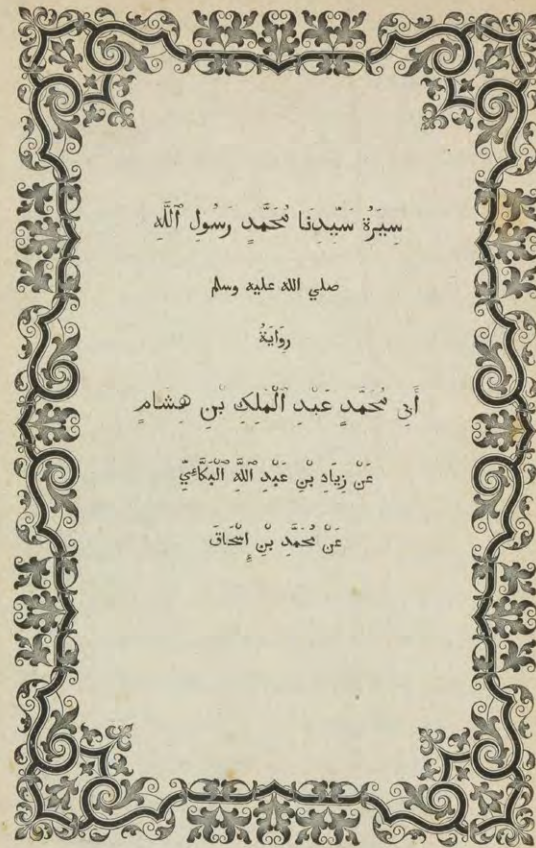 سِيرَةُ سَيِّدِنَا مُحَمَّدٍ رَسُولِ ٱللَّهِ
صلي الله عليه وسلم
رِوَايَةُ
أَبِى مُحَمَّدٍ عَبْدِ ٱلْمَلِكِ بْنِ هِشَامٍ
عَنْ زِيَادِ بْنِ عَبْدِ ٱللَّهِ ٱلْبَكَّاءِىِّ
عَنْ مُحَمَّدِ بْنِ إِسْحَاقَ